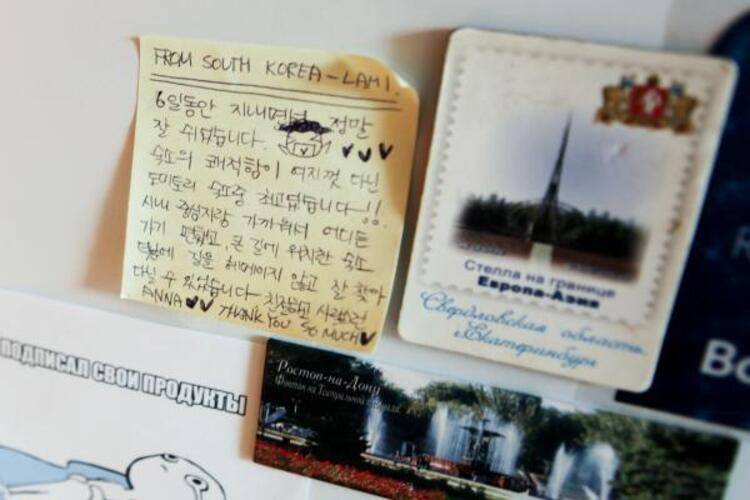 FROM SOUTH KOREA - LAMI.
6일동안 지내면서 정말
잘 쉬었습니다.
숙소의 쾌적함이 여지껏 다닌
도미토리 숙소중 최고였습니다!!
시내 중심지랑 가까워서 어디든
가기 편했고, 큰 길에 위치한 숙소
덕분에 길을 헤메이지 않고 잘 찾아
다닐 수 있었습니다 친절하고 사랑스런
ANNA THANK YOU SO MUCH
Стелла на границе
Европа-Азия
Свердловская область,
г.Екатеринбург
Ростов-на-Дону
Фонтан на Театральной площади
ПОДПИСАЛ СВОИ ПРОДУКТЫ
Во